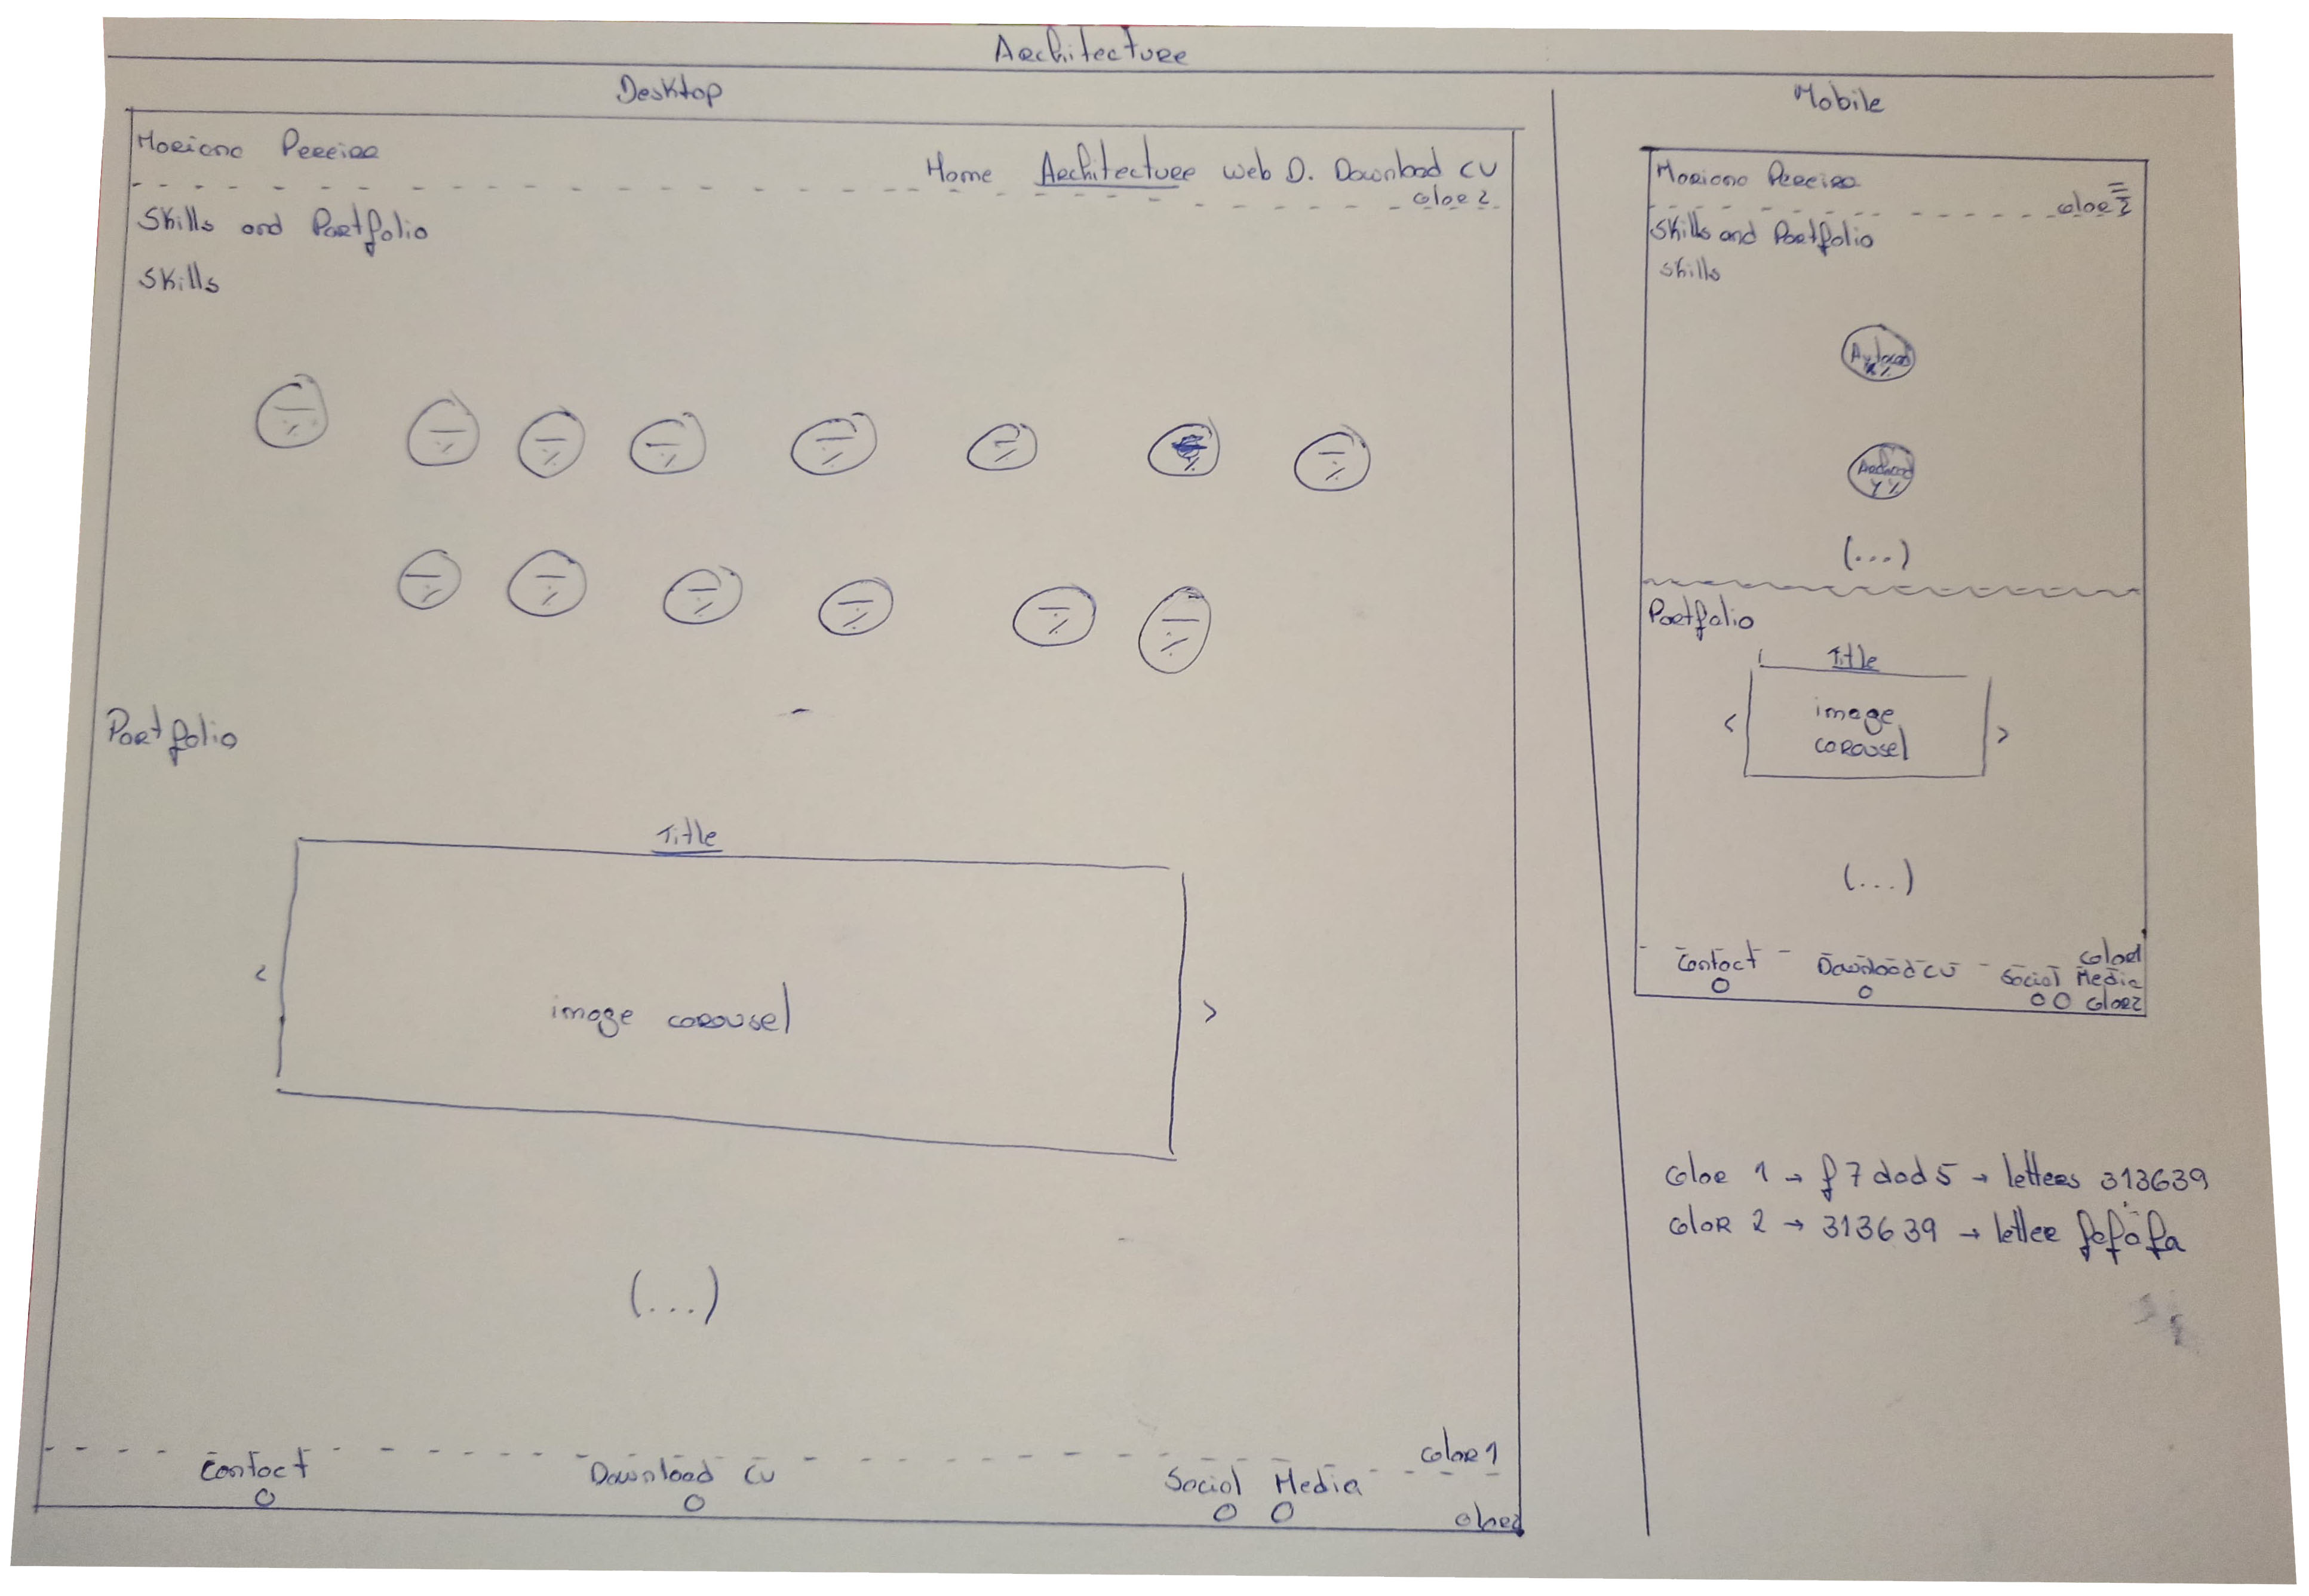 Architecture
Desktop
Mariana Pereira
Home Architecture Web D. Download CV
color 2
Skills and Portfolio
Skills
%
%
%
%
%
%
%
%
%
%
%
%
%
%
Portfolio
Title
< image carousel >
(...)
color 1
Contact Download CV Social Media
color 2
Mobile
Mariana Pereira
color 2
Skills and Portfolio
Skills
Autocad
x %
y %
(...)
Portfolio
Title
image
< carousel >
(...)
color 1
Contact Download CV Social Media
color 2
color 1 → f7dad5 → letters 313639
color 2 → 313639 → letter fafafa